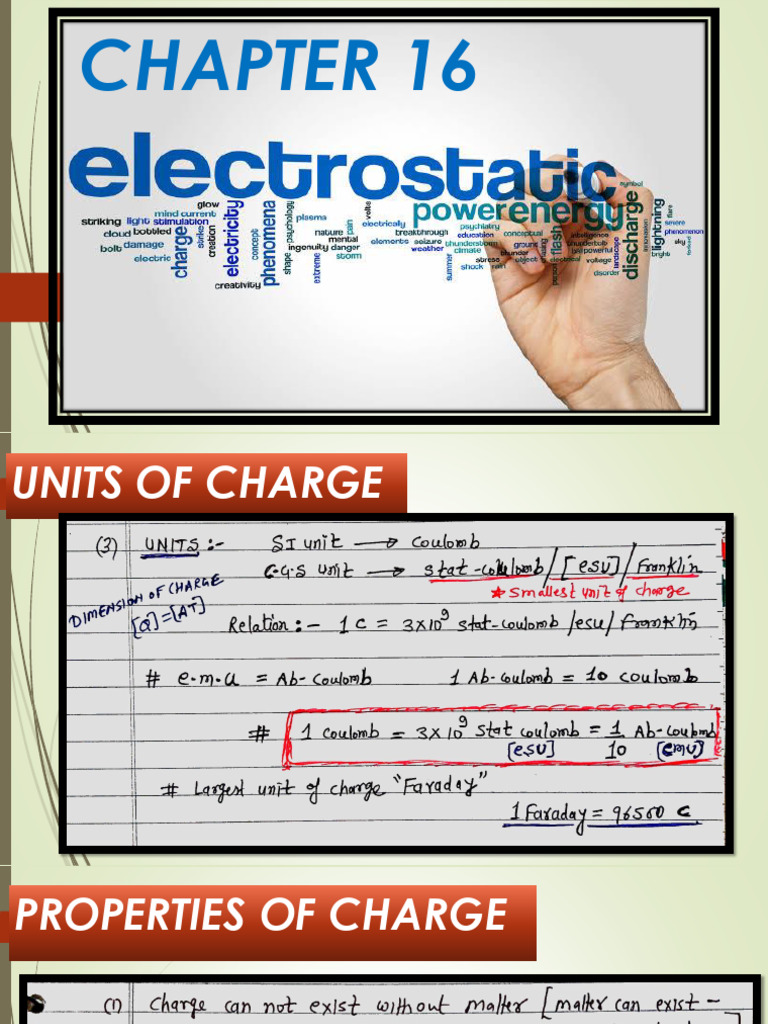 CHAPTER 16
electrostatic
power energy
glow
mind current
striking light stimulation
cloud bobbled
bolt damage
electric
charge
strike
creation
electricity
concept
phenomena
creativity
shape
psychology
plasma
nature
mental
ingenuity danger
storm
extreme
pain
volts
electrically
breakthrough
elements seizure
weather
summer
psychiatry
education
thunderstorm
climate
stress
shock rain
conceptual
ground
thunder
object
flash
electrical
intelligence
thunderbolt
powerful
voltage
disorder
discharge
symbol
lightning
flare
severe
phenomenon
sky
bright
UNITS OF CHARGE
(3) UNITS :- SI unit → Coulomb
C.G.S unit → Stat-coulomb / [esu] / Franklin
* Smallest unit of charge
DIMENSION OF CHARGE
[Q] = [AT]
Relation :- 1 C = 3×10⁹ stat-coulomb/esu/franklin
# e.m.u = Ab-Coulomb 1 Ab-coulomb = 10 coulomb
# 1 coulomb = 3×10⁹ stat coulomb = 1/10 Ab-coulomb
[esu] [emu]
# Largest unit of charge "Faraday"
1 Faraday = 96500 C
PROPERTIES OF CHARGE
(1) Charge can not exist without matter [matter can exist –